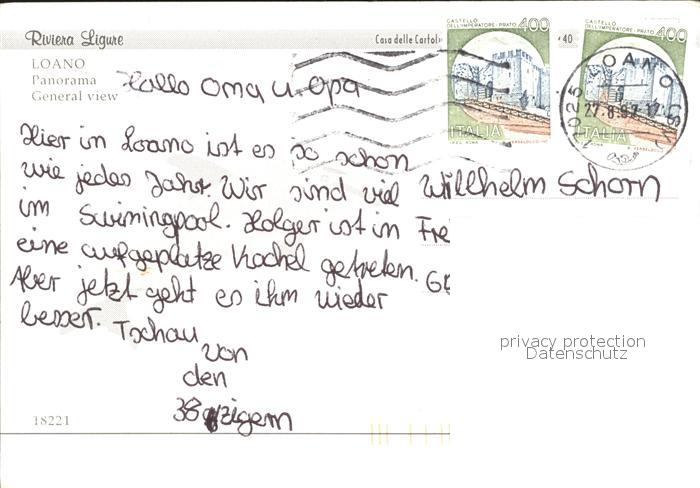 Riviera Ligure
Casa delle Cartol
40
LOANO
Panorama
General view
CASTELLO
DELL'IMPERATORE - PRATO 400
ITALIA
CASTELLO
DELL'IMPERATORE - PRATO 400
ITALIA
LOANO
17025
27.8.97
Hallo Oma u. Opa
Hier in Loano ist es so schon
wie jedes Jahr. Wir sind viel
im Swimingpool. Holger ist in
eine aufgeplatze Kachel getreten.
Aber jetzt geht es ihm wieder
besser. Tschau
von
den
Willhelm Schorn
Fre
privacy protection
Datenschutz
18221